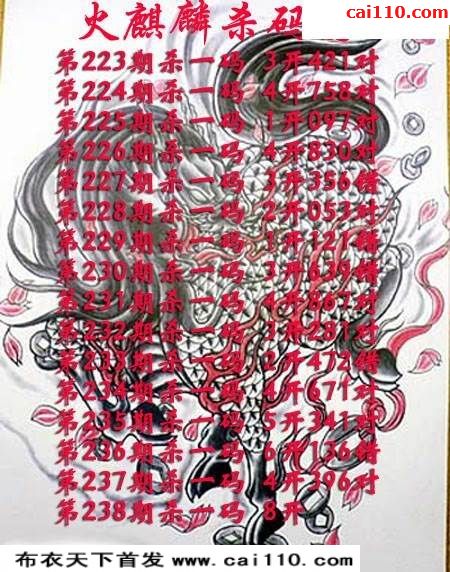 cai110.com
火麒麟杀码
第223期杀一码 3开421对
第224期杀一码 4开758对
第225期杀一码 1开097对
第226期杀一码 4开830对
第227期杀一码 3开356错
第228期杀一码 2开053对
第229期杀一码 1开121错
第230期杀一码 3开639错
第231期杀一码 4开867对
第232期杀一码 3开281对
第233期杀一码 2开472错
第234期杀一码 4开671对
第235期杀一码 5开341对
第236期杀一码 6开136错
第237期杀一码 4开396对
第238期杀一码 8开
布衣天下首发 www.cai110.com